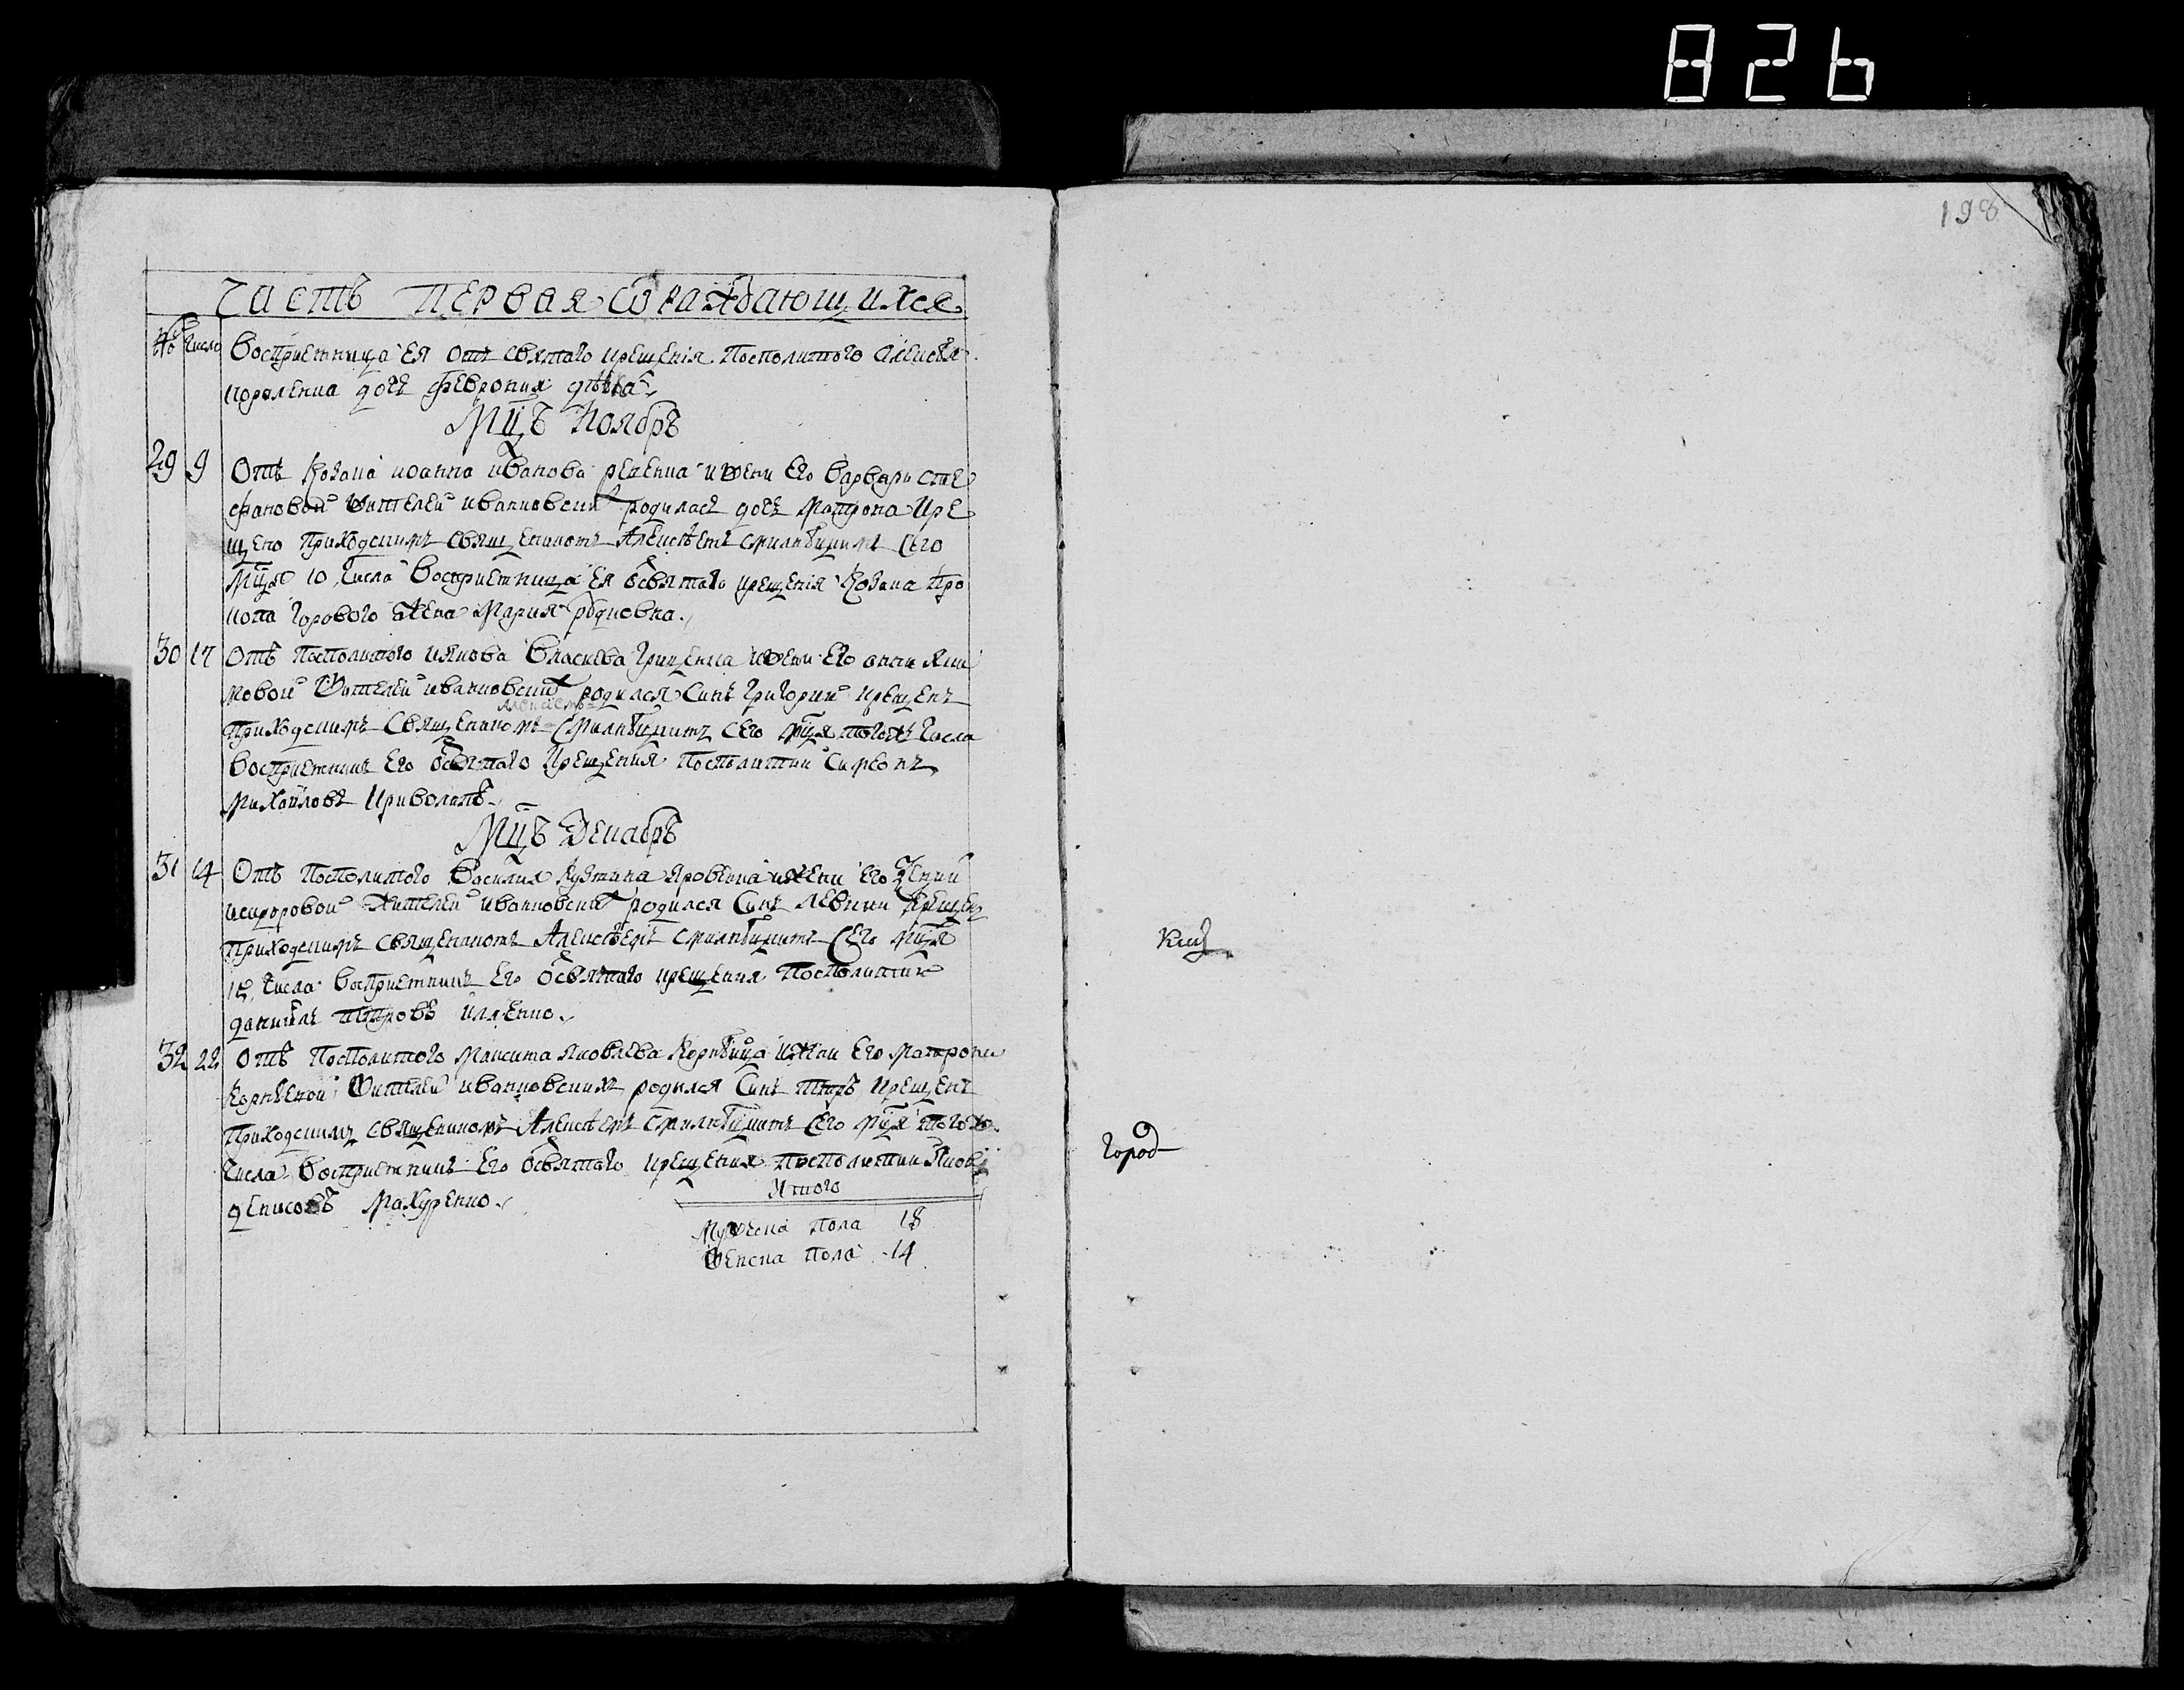 826
198
Часть первая о раждающихся
№ Число Восприемница ея отъ святаго крещенія посполитого Алексѣя
дочь Феврония дѣвка
Мцъ Ноябрь
29 9 Отъ козака иоанна иванова и жени его варвари сте
фановой жителей ивановских родилась дочь Матрона кре
щено приходским священиком Алексѣем Сего
Мця 10 числа восприемница ея ѿ святаго крещенія козака про
копа горового жена Мария
30 17 Отъ посполитого якова власиева гриценка и жени его анни яки
мовой жителей ивановских родился Синъ григорий крещенъ
Алексѣемъ
приходскимъ священикомъ сего мця того ж числа
восприемникъ его ѿ святаго крещения посполитий Симеонъ
Михайловъ
Мцъ Декабрь
31 14 Отъ посполитого василия кузмина яровенка и жени его
исидоровой жителей ивановских родился Синъ крещен
приходскимъ священикомъ Алексѣемъ Сего мця
числа восприемникъ его ѿ святаго крещения посполитий
даниилъ петровъ
32 22 отъ посполитого Максима яковлева и жени его матрони
жителей ивановскихъ родился Синъ петръ крещенъ
приходскимъ священикомъ Алексѣемъ Сего мця того ж
числа восприемникъ его ѿ святаго крещения посполитий яковъ
денисовъ
Итого
Мужеска пола 18
Женска пола 14
город